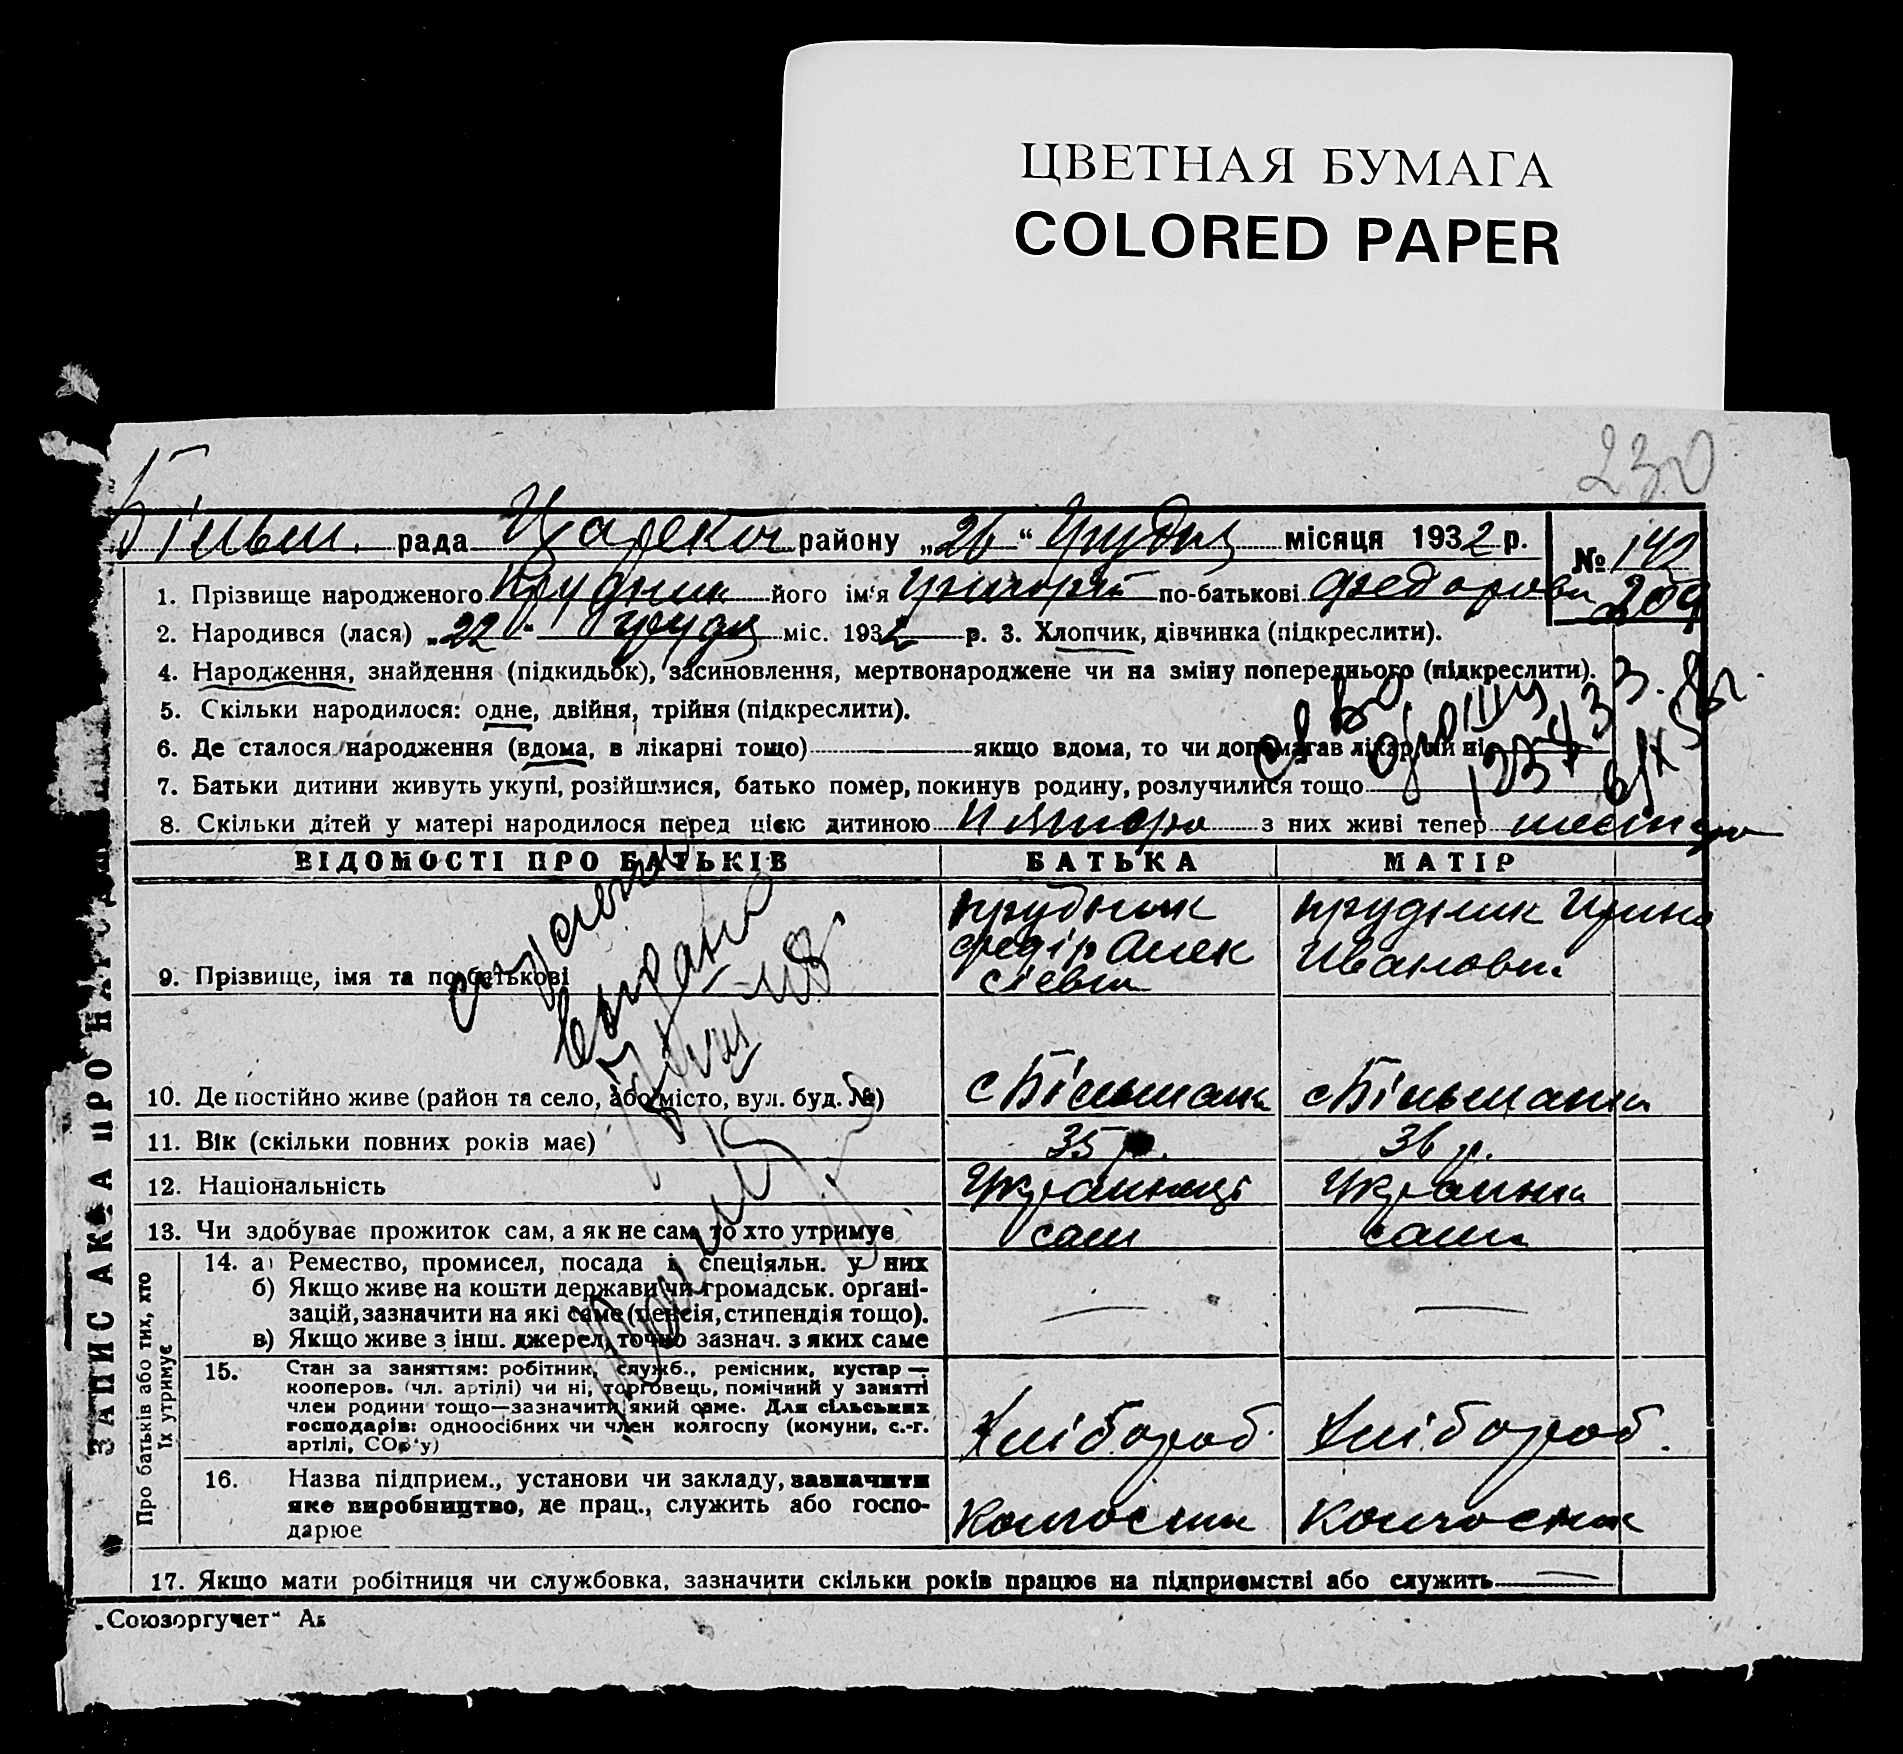 ЦВЕТНАЯ БУМАГА
COLORED PAPER
230
Більш. рада району „26“ Грудня місяця 1932 р. № 142
209
1. Прізвище народженого Прудник його ім'я Григорій по-батькові Федорови
2. Народився (лася) „22“ груд міс. 1932 р. 3. Хлопчик, дівчинка (підкреслити).
4. Народження, знайдення (підкидьок), засиновлення, мертвонароджене чи на зміну попереднього (підкреслити).
5. Скільки народилося: одне, двійня, трійня (підкреслити).
6. Де сталося народження (вдома, в лікарні тощо) якщо вдома, то чи допомагав лікар чи ні
7. Батьки дитини живуть укупі, розійшлися, батько помер, покинув родину, розлучилися тощо
8. Скільки дітей у матері народилося перед цією дитиною з них живі тепер
ВІДОМОСТІ ПРО БАТЬКІВ БАТЬКА МАТІР
9. Прізвище, імя та по-батькові
Прудник Федір Алексієви
Прудник Ирина Ивановн
10. Де постійно живе (район та село, або місто, вул. буд. №) с Більшанка с Більшанка
11. Вік (скільки повних років має) 35 р. 36 р.
12. Національність Українець Українка
13. Чи здобуває прожиток сам, а як не сам, то хто утримує сам сама
Про батьків або тих, хто їх утримує
14. а) Ремество, промисел, посада і спеціяльн. у них
б) Якщо живе на кошти держави чи громадськ. органі-
зацій, зазначити на які саме (пенсія, стипендія тощо).
в) Якщо живе з інш. джерел, точно зазнач. з яких саме
15. Стан за заняттям: робітник, служб., ремісник, кустар —
кооперов. (чл. артілі) чи ні, торговець, помічний у занятті
член родини тощо—зазначити який саме. Для сільських
господарів: одноосібних чи член колгоспу (комуни, с.-г.
артілі, СОЗ'у)
Хлібороб. Хлібороб.
16. Назва підприєм., установи чи закладу, зазначити
яке виробництво, де прац., служить або госпо-
дарює
17. Якщо мати робітниця чи службовка, зазначити скільки років працює на підприємстві або служить
„Союзоргучет“
ЗАПИС АКА ПРО НАРОД